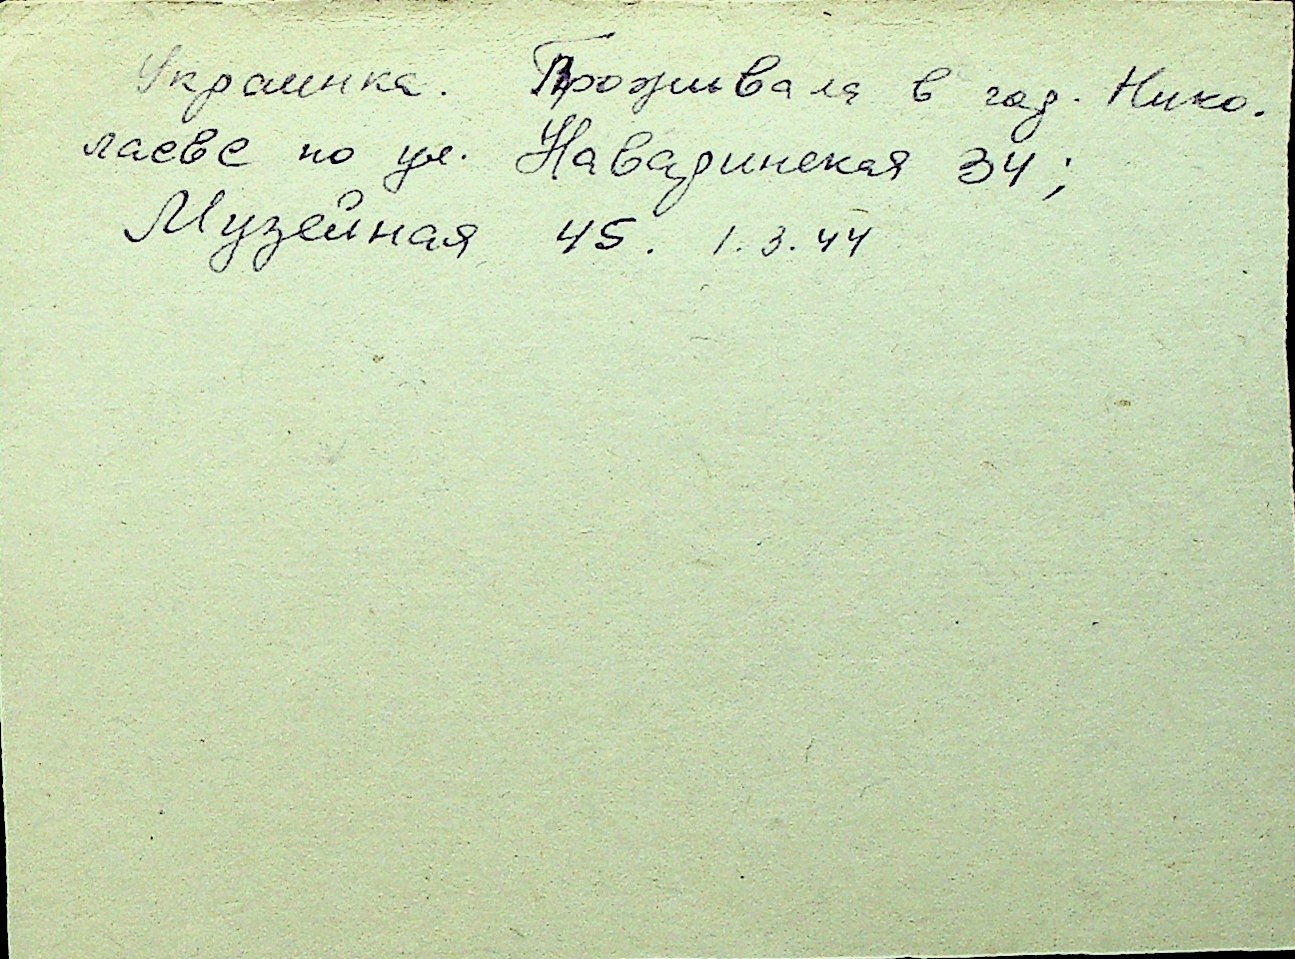 Украинка. Проживала в гор. Нико-
лаеве по ул. Наваринская 34;
Музейная 45. 1.3.44